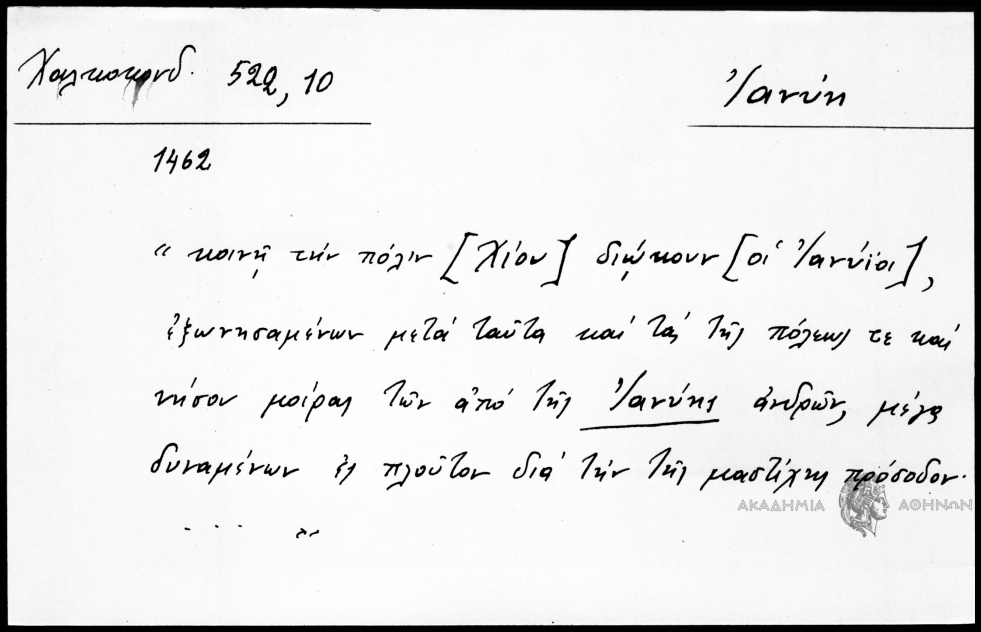 Χαλκοκονδ. 522, 10
Ἰανύη
1462
" κοινῇ τήν πόλιν [Χίου] διῴκουν [οἱ Ἰανύϊοι],
ἐξωνησαμένων μετά ταῦτα καί τάς τῆς πόλεως τε καί
νήσου μοίρας τῶν ἀπό τῆς Ἰανύης ἀνδρῶν, μέγα
δυναμένων ἐς πλοῦτον διά τήν τῆς μαστίχης πρόσοδον.
. . . . "
ΑΚΑΔΗΜΙΑ ΑΘΗΝΩΝ